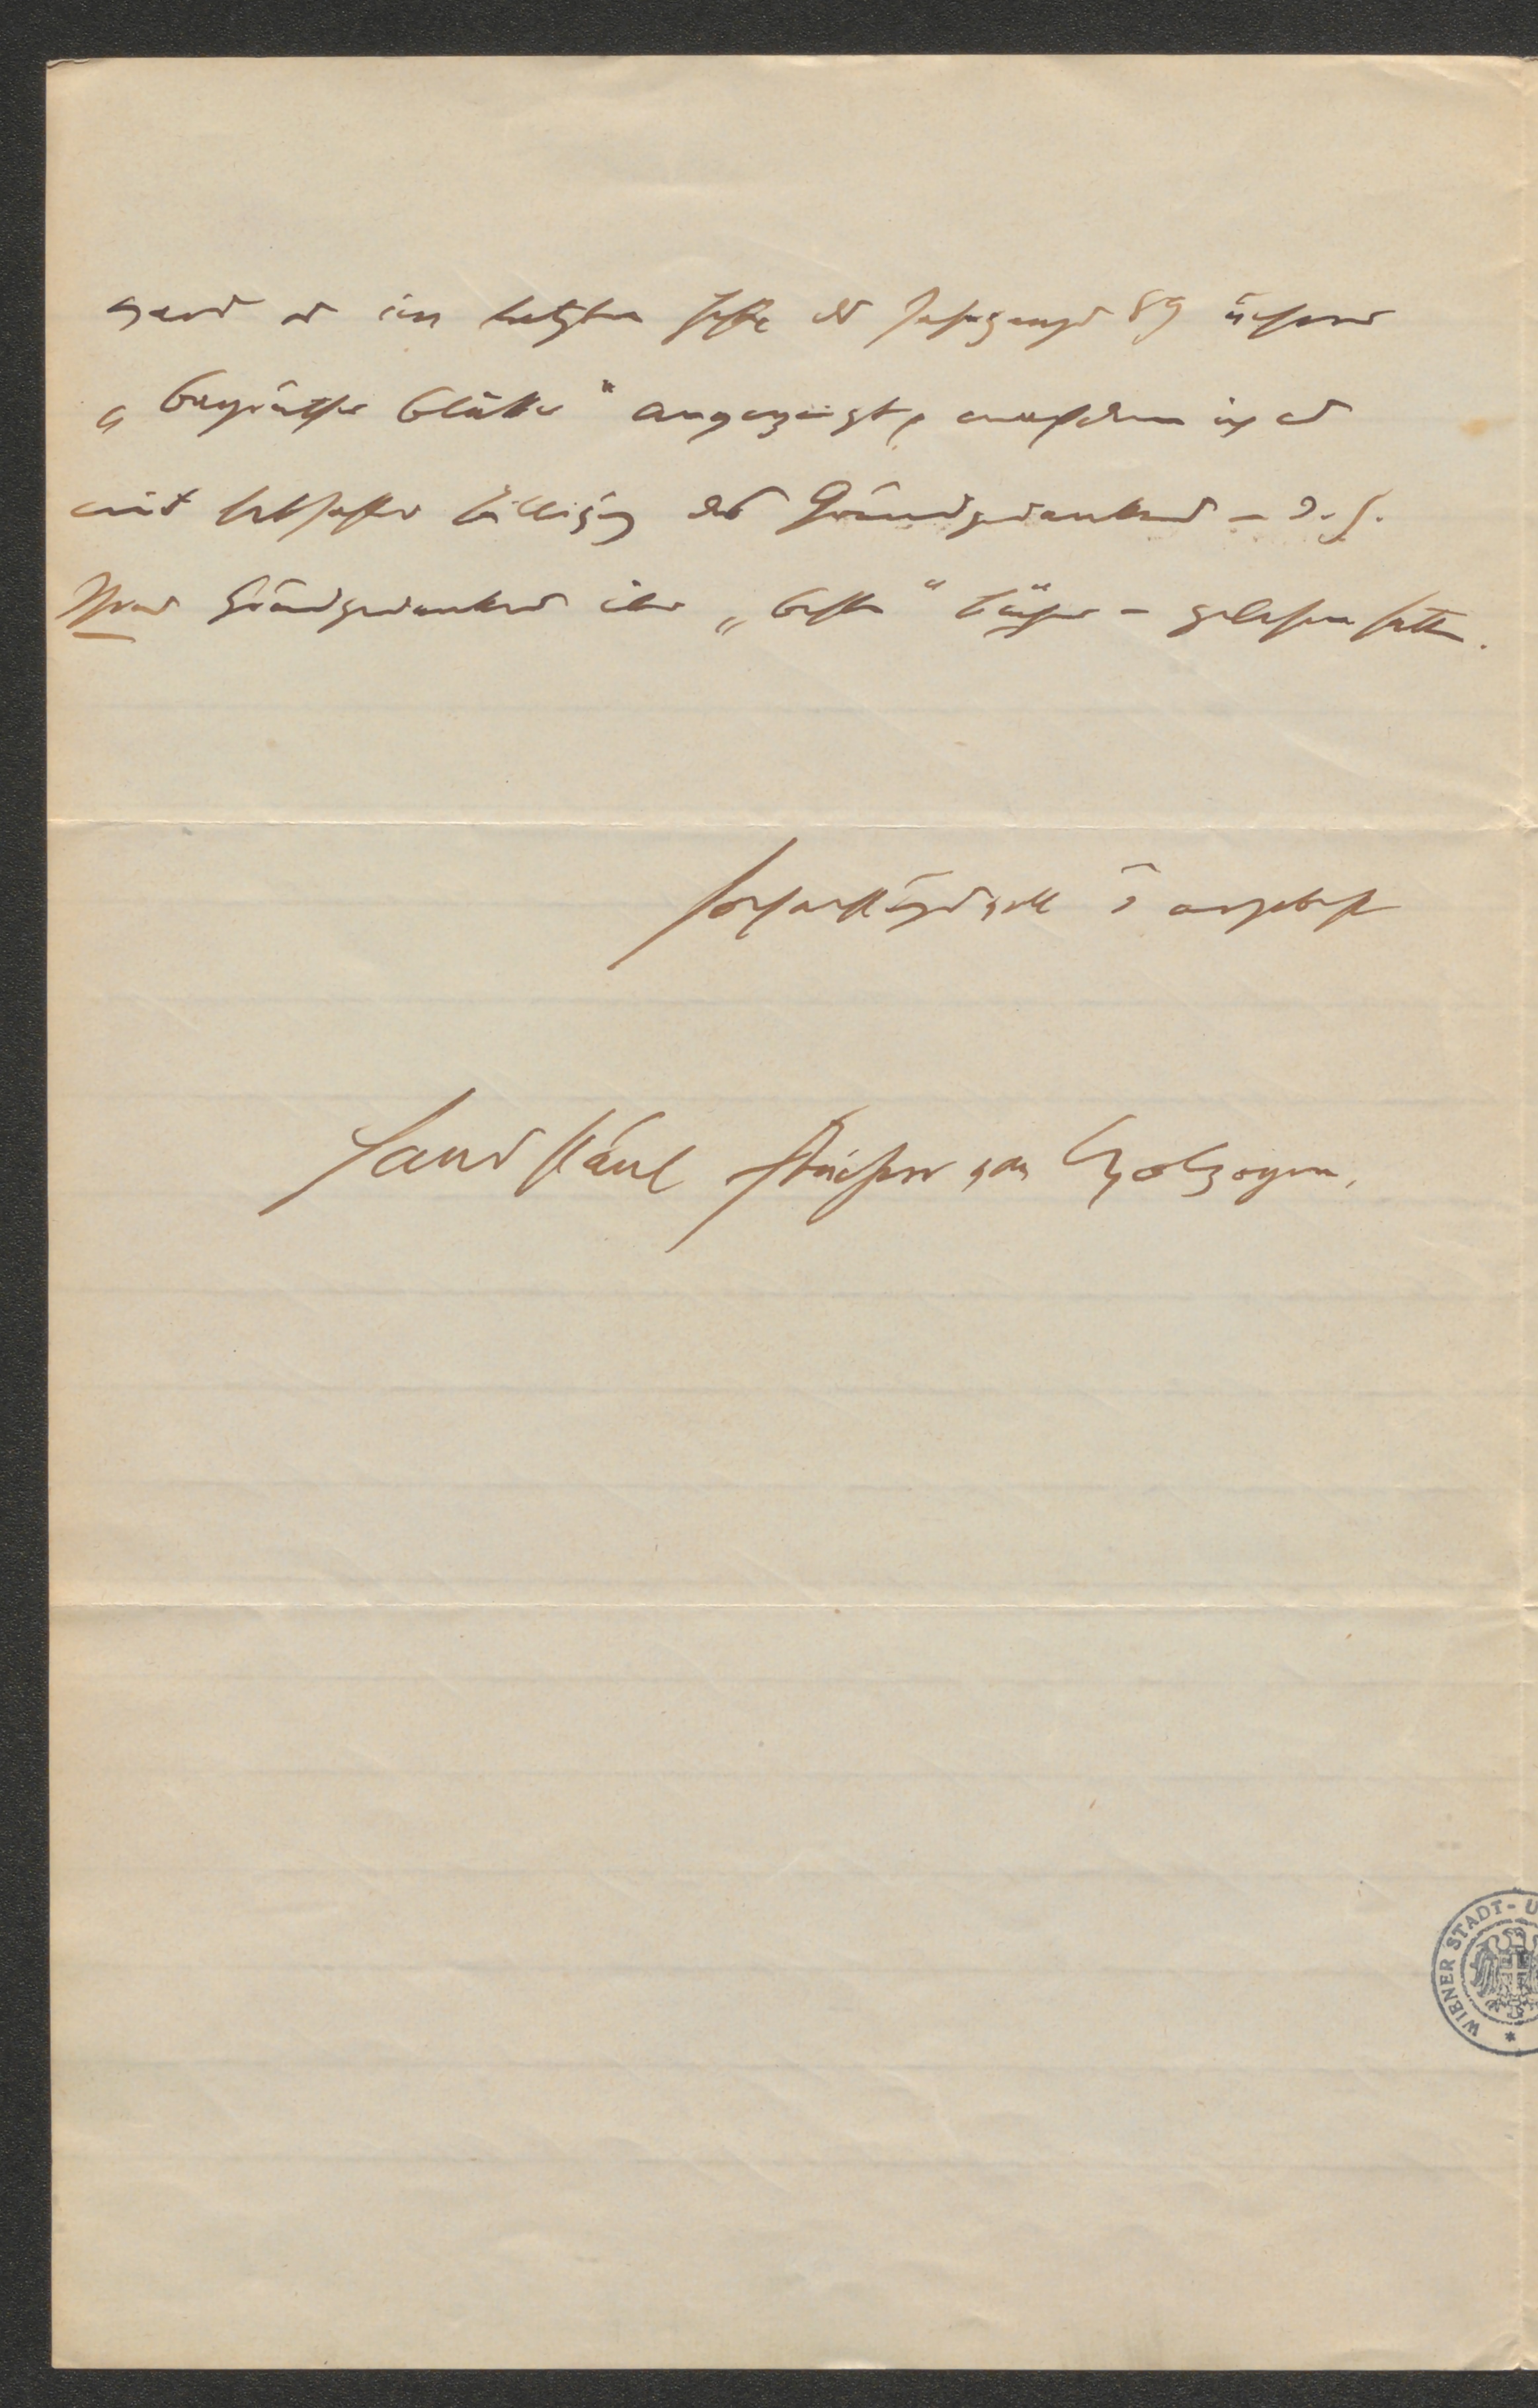 es im letzten Hefte des Jahrgangs 89 unserer
„Bayreuther Blätter“ angezeigt, nachdem ich es
mit lebhafter Billigung des Grundgedankens – d. h.
Ihres Grundgedankens über „beste“ Bücher – gelesen hatte.
hochachtungsvoll u ergebenst
Hans Paul Freiherr von Wolzogen.
WIENER STADT- U